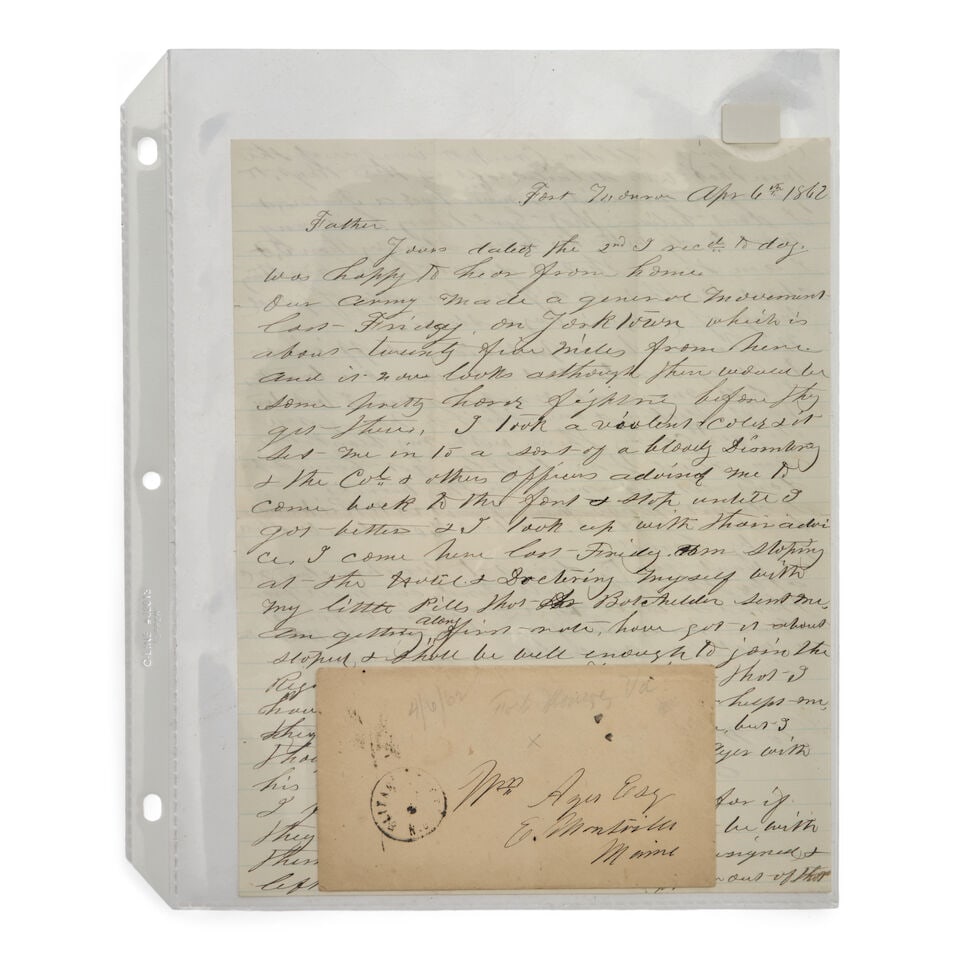 Fort Monroe Apr 6th 1862
Father
Yours dated the 2nd I recd to day.
was happy to hear from home.
Our army made a general movement
last Friday, on Yorktown which is
about twenty five miles from here.
and it now looks although there would be
some pretty hard fighting before they
get there, I took a violent cold & it
set me in to a sort of a bloody
& the Col. & others Officers advised me to
come back to the fort & stop until I
got better & I took up with their advi
ce, I come here last Friday. am stoping
at the Hotel & Doctering myself with
my little Pills that Batchelder sent me,
am getting along first-rate, have got it about
stoped, & shall be well enough to join the
Reg that I
hav helps me,
they but I
tho Ayer with
his
I for if
they be with
them &
left out of that
4/6/62 Fort Monroe, Va
x
Wm Ayer Esq
E. Montville
Maine